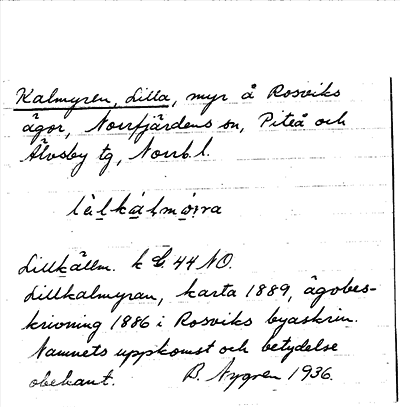 Kalmyren, Lilla, myr å Rosviks
ägor, Norrfjärdens sn, Piteå och
Älvsby tg, Norrb. l.
Lillkällm. k 44 NO.
Lillkalmyran, karta 1889, ägobes-
krivning 1886 i Rosviks byaskrin.
Namnets uppkomst och betydelse
obekant. B. Nygren 1936.